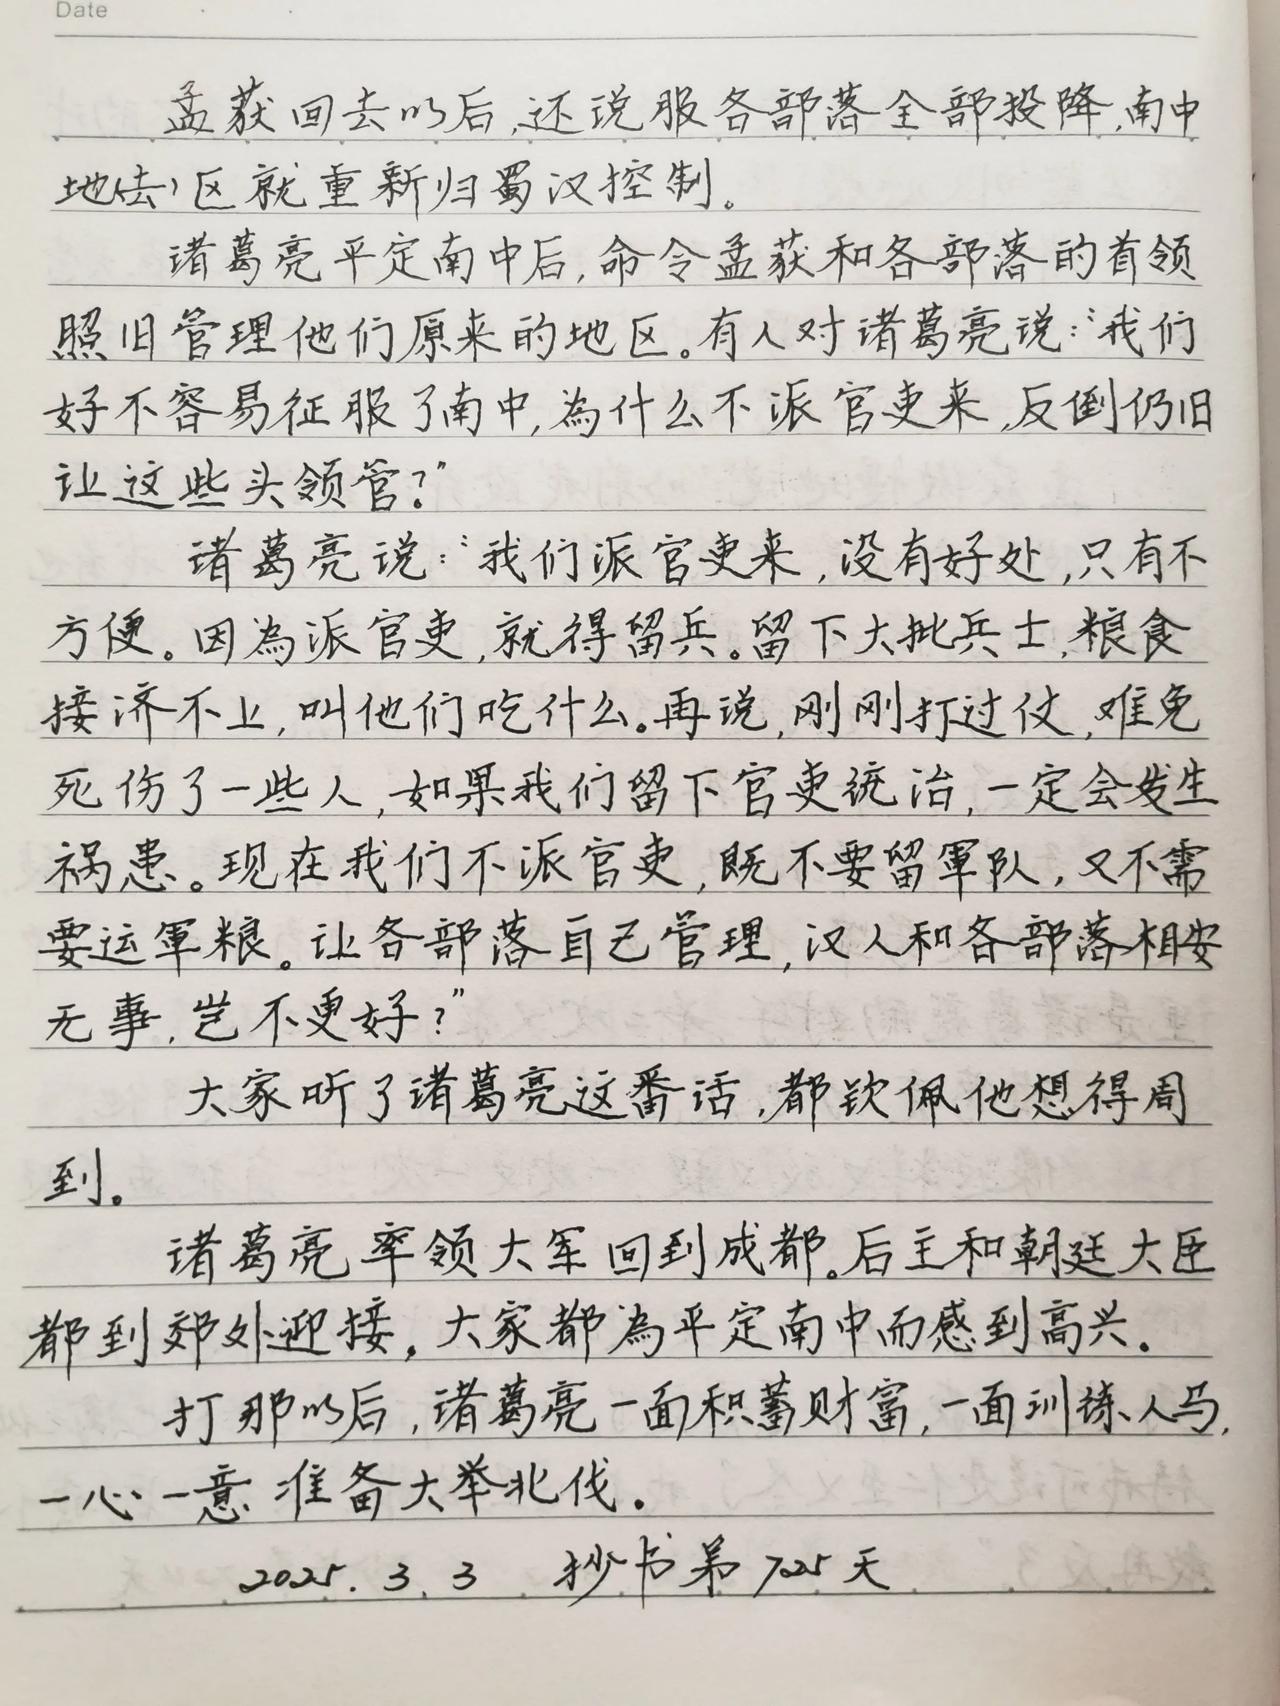 Date
孟获回去以后,还说服各部落全部投降,南中
地(去)区就重新归蜀汉控制。
诸葛亮平定南中后,命令孟获和各部落的首领
照旧管理他们原来的地区。有人对诸葛亮说:“我们
好不容易征服了南中,為什么不派官吏来,反倒仍旧
让这些头领管?”
诸葛亮说:“我们派官吏来,没有好处,只有不
方便。因為派官吏,就得留兵。留下大批兵士,粮食
接济不上,叫他们吃什么。再说,刚刚打过仗,难免
死伤了一些人,如果我们留下官吏统治,一定会发生
祸患。现在我们不派官吏,既不要留軍队,又不需
要运軍粮。让各部落自己管理,汉人和各部落相安
无事,岂不更好?”
大家听了诸葛亮这番话,都钦佩他想得周
到。
诸葛亮率领大军回到成都。后主和朝廷大臣
都到郊外迎接。大家都為平定南中而感到高兴。
打那以后,诸葛亮一面积蓄财富,一面训练人马,
一心一意准备大举北伐。
2025.3.3 抄书第725天